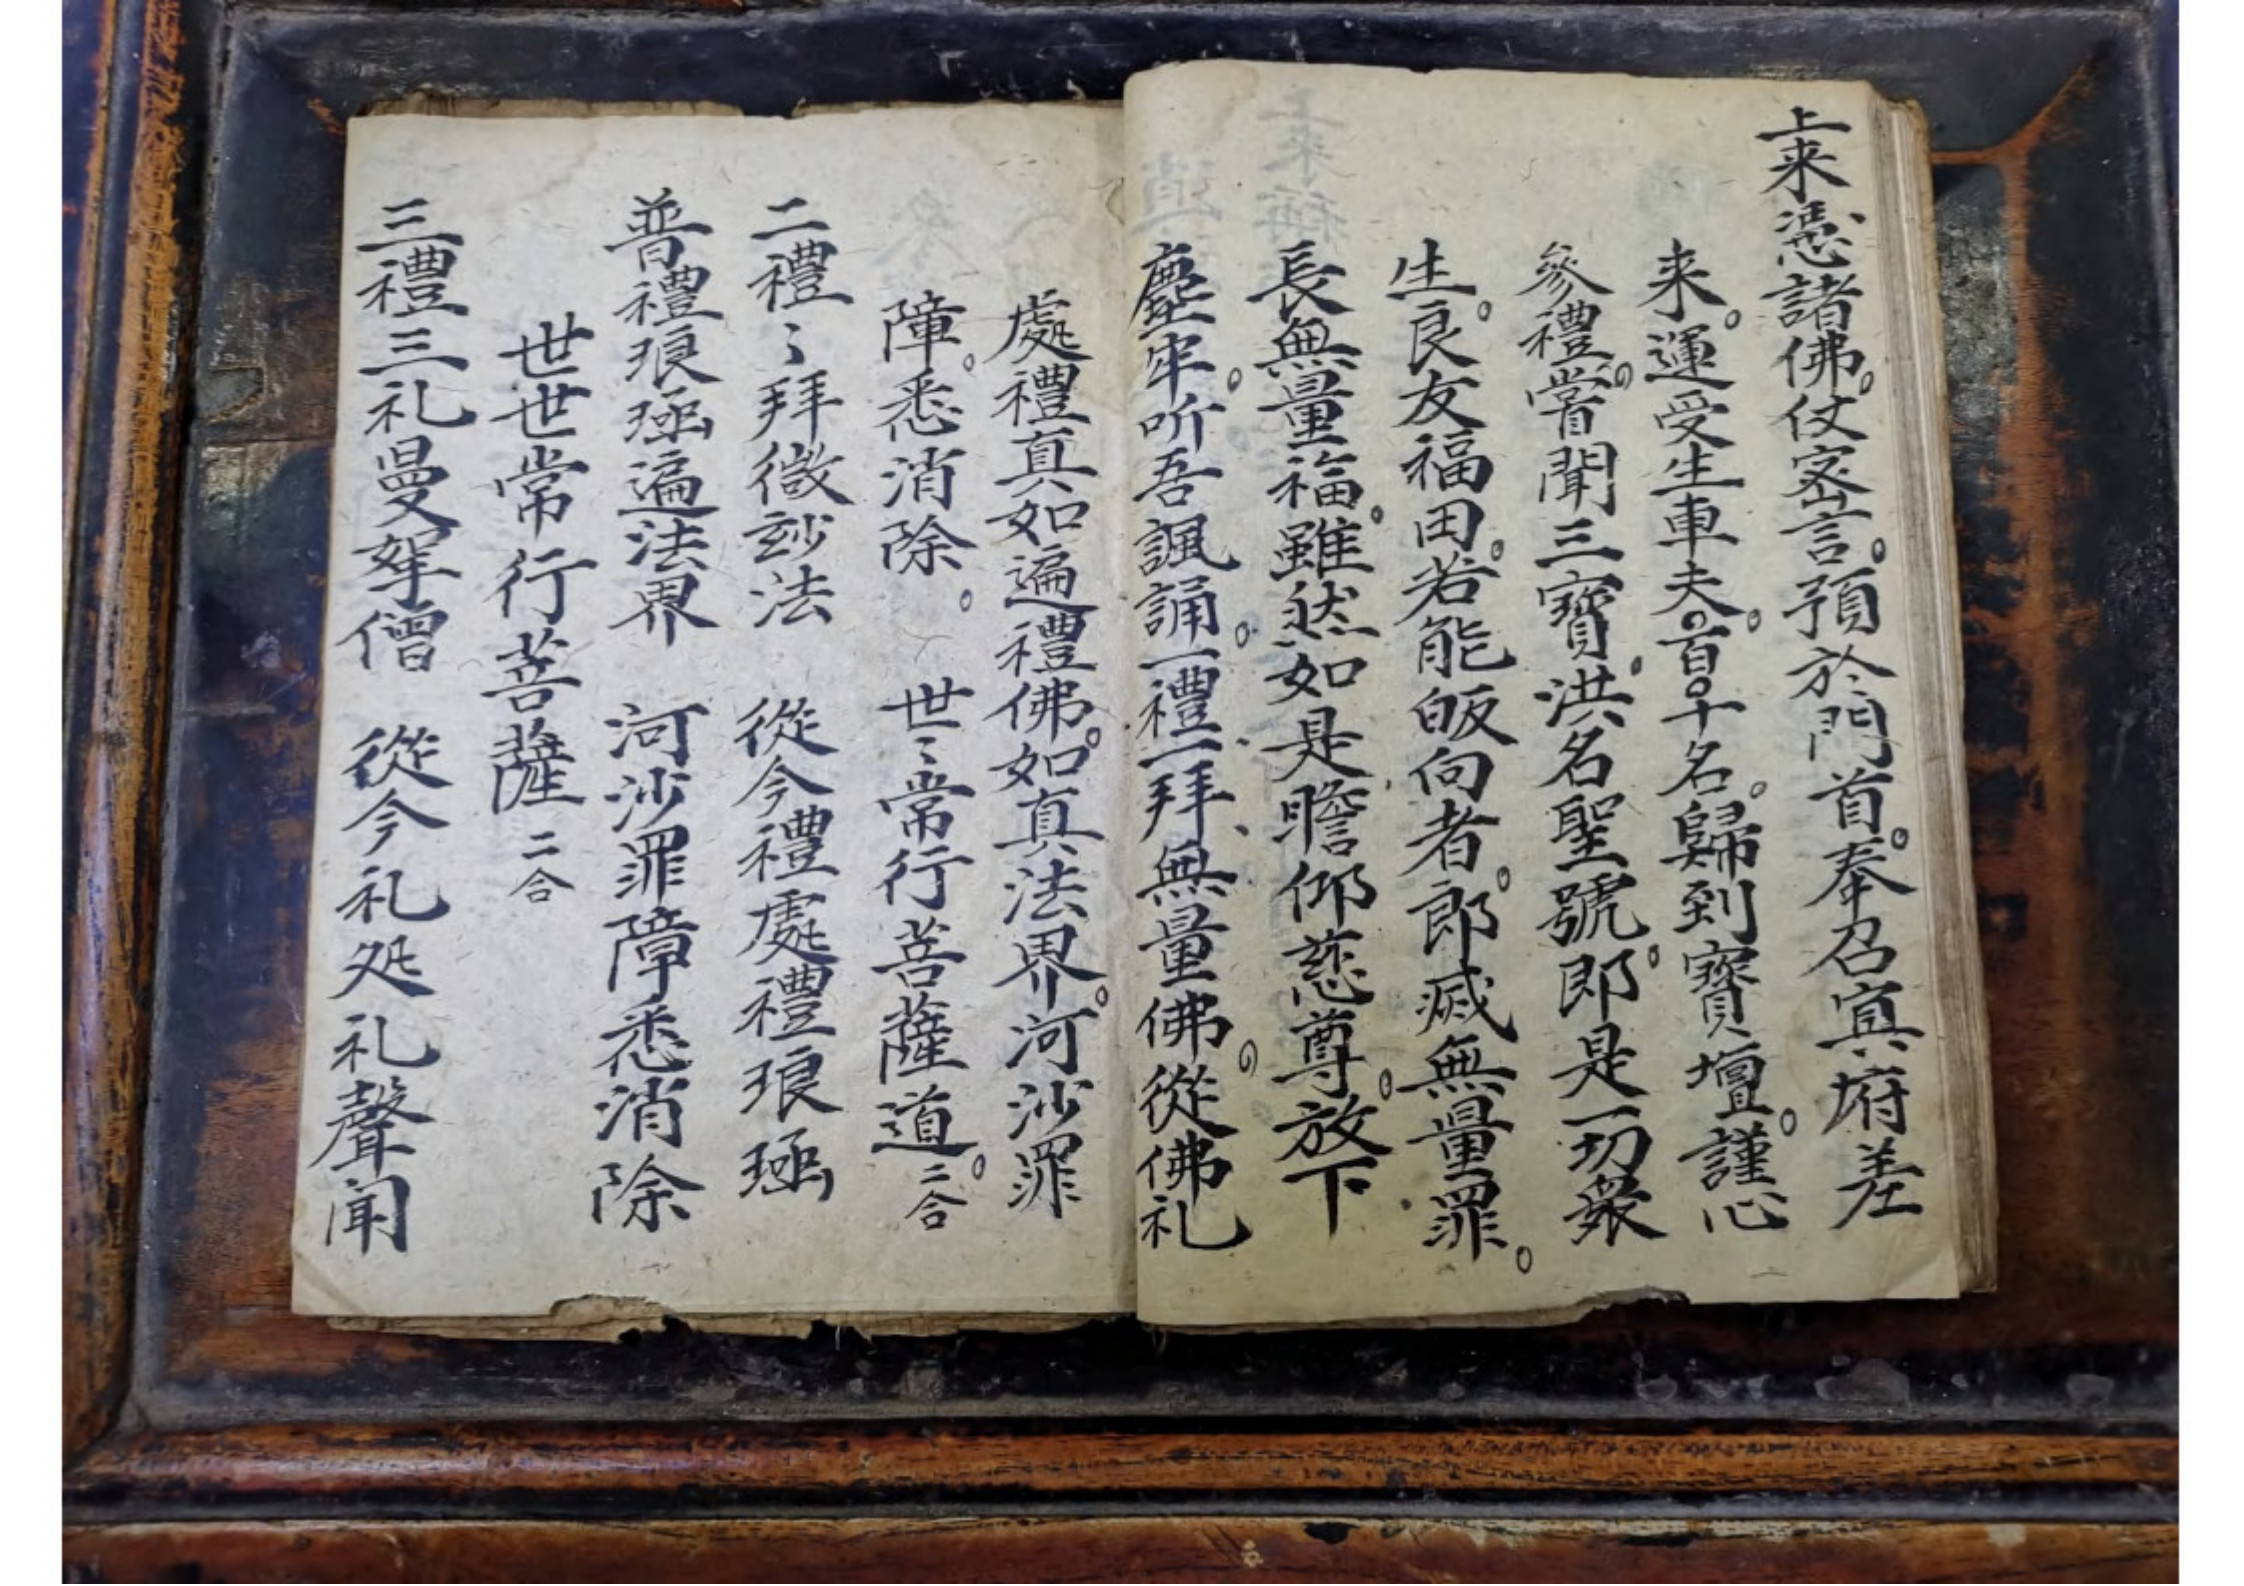 上来憑諸佛。仗宻言。預於門首。奉召冥府差
来。運受生車夫。百十名。歸到寶壇。謹心
參禮。嘗聞三寳。洪名聖號。即是一切衆
生。良友福田。若能皈向者。郎滅無量罪。
長無量福。雖然如是瞻仰慈尊。放下
塵牢。听吾諷誦。一禮一拜無量佛。從佛礼
處禮真如遍禮佛。如真法界。河沙罪
障。悉消除。世〻常行菩薩道。二合
二禮〻拜微玅法 從今禮處禮琅
普禮琅 遍法界 河沙罪障悉消除
世世常行菩薩 二合
三禮三礼曼拏僧 從今礼処礼聲闻